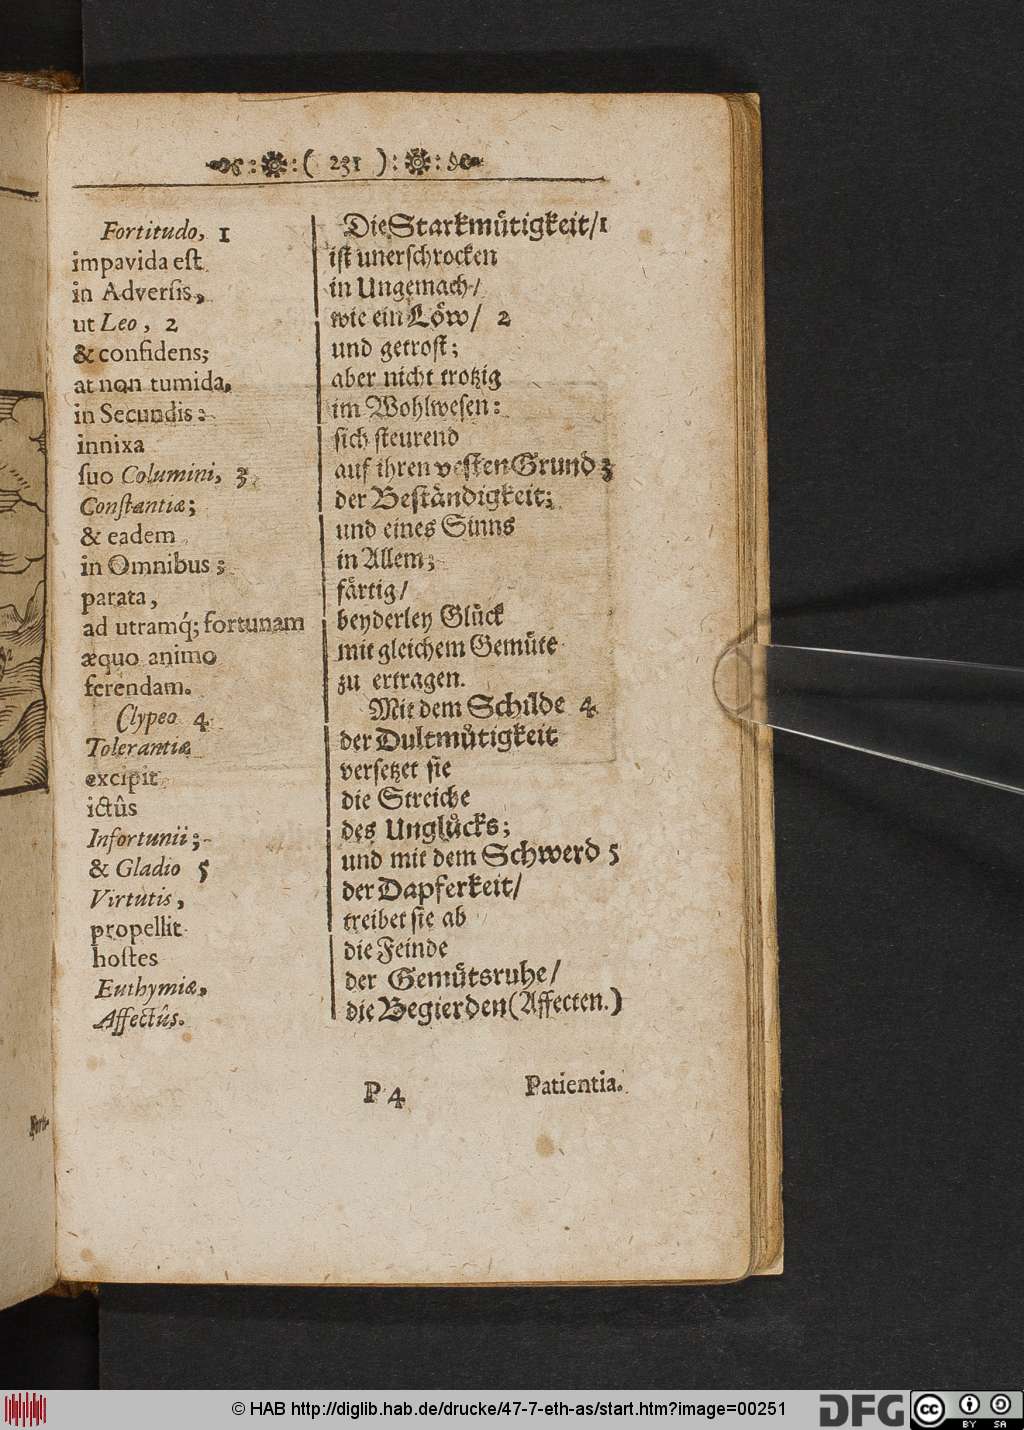 ( 231 )
Fortitudo, 1
impavida est
in Adversis,
ut Leo, 2
& confidens;
at non tumida,
in Secundis:
innixa
suo Columini, 3
Constantiæ;
& eadem
in Omnibus;
parata,
ad utramq́; fortunam
æquo animo
ferendam.
Clypeo 4
Tolerantiæ
excipit
ictûs
Infortunii;
& Gladio 5
Virtutis,
propellit
hostes
Euthymiæ,
Affectûs.
Die Starkmuͤtigkeit/ 1
ist unerschrocken
in Ungemach/
wie ein Loͤw/ 2
und getrost;
aber nicht trotzig
im Wohlwesen:
sich steurend
auf ihren vesten Grund 3
der Beståndigkeit;
und eines Sinns
in Allem;
faͤrtig/
beyderley Gluͤck
mit gleichem Gemuͤte
zu ertragen.
Mit dem Schilde 4
der Dultmuͤtigkeit
versetzet sie
die Streiche
des Ungluͤcks;
und mit dem Schwerd 5
der Dapferkeit/
treibet sie ab
die Feinde
der Gemuͤtsruhe/
die Begierden (Affecten.)
P 4
Patientia.
© HAB http://diglib.hab.de/drucke/47-7-eth-as/start.htm?image=00251
DFG
cc BY SA